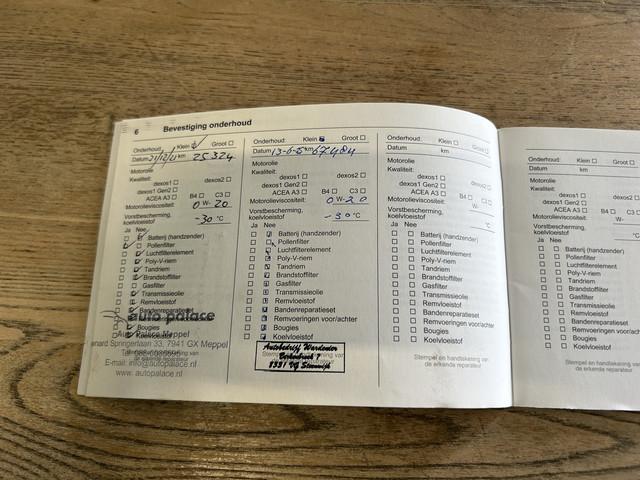 6 Bevestiging onderhoud
Onderhoud: Klein Groot
Datum 21/12/21 km 25324
Motorolie
Kwaliteit:
dexos1 dexos2
dexos1 Gen2
ACEA A3 B4 C3
Motorolieviscositeit: 0 W-20
Vorstbescherming,
koelvloeistof -30 °C
Ja Nee
Batterij (handzender)
Pollenfilter
Luchtfilterelement
Poly-V-riem
Tandriem
Brandstoffilter
Gasfilter
Transmissieolie
Remvloeistof
Bandenreparatieset
auto palace
Bougies
Palace Meppel
Koelvloeistof
enard Springerlaan 33, 7941 GX Meppel
de erkende reparateur
E-mail: info@autopalace.nl
www.autopalace.nl
Onderhoud: Klein Groot
Datum 13-6-25 km 67484
Motorolie
Kwaliteit:
dexos1 dexos2
dexos1 Gen2
ACEA A3 B4 C3
Motorolieviscositeit: 0 W-20
Vorstbescherming,
koelvloeistof -30 °C
Ja Nee
Batterij (handzender)
Pollenfilter
Luchtfilterelement
Poly-V-riem
Tandriem
Brandstoffilter
Gasfilter
Transmissieolie
Remvloeistof
Bandenreparatieset
Remvoeringen voor/achter
Bougies
Koelvloeistof
Autobedrijf Wardenier
8331 VG Steenwijk
Onderhoud: Klein Groot
Datum km
Motorolie
Kwaliteit:
dexos1 dexos2
dexos1 Gen2
ACEA A3 B4 C3
Motorolieviscositeit: W-
Vorstbescherming,
koelvloeistof °C
Ja Nee
Batterij (handzender)
Pollenfilter
Luchtfilterelement
Poly-V-riem
Tandriem
Brandstoffilter
Gasfilter
Transmissieolie
Remvloeistof
Bandenreparatieset
Remvoeringen voor/achter
Bougies
Koelvloeistof
Stempel en handtekening van
de erkende reparateur
Onderhoud: Klein
Datum km
Motorolie
Kwaliteit:
dexos1
dexos1 Gen2
ACEA A3 B4
Motorolieviscositeit: W-
Vorstbescherming,
koelvloeistof °C
Ja Nee
Batterij (handzender)
Pollenfilter
Luchtfilterelement
Poly-V-riem
Tandriem
Brandstoffilter
Gasfilter
Transmissieolie
Remvloeistof
Bandenreparatieset
Remvoeringen voor/achter
Bougies
Koelvloeistof
Stempel en handtekening van
de erkende reparateur